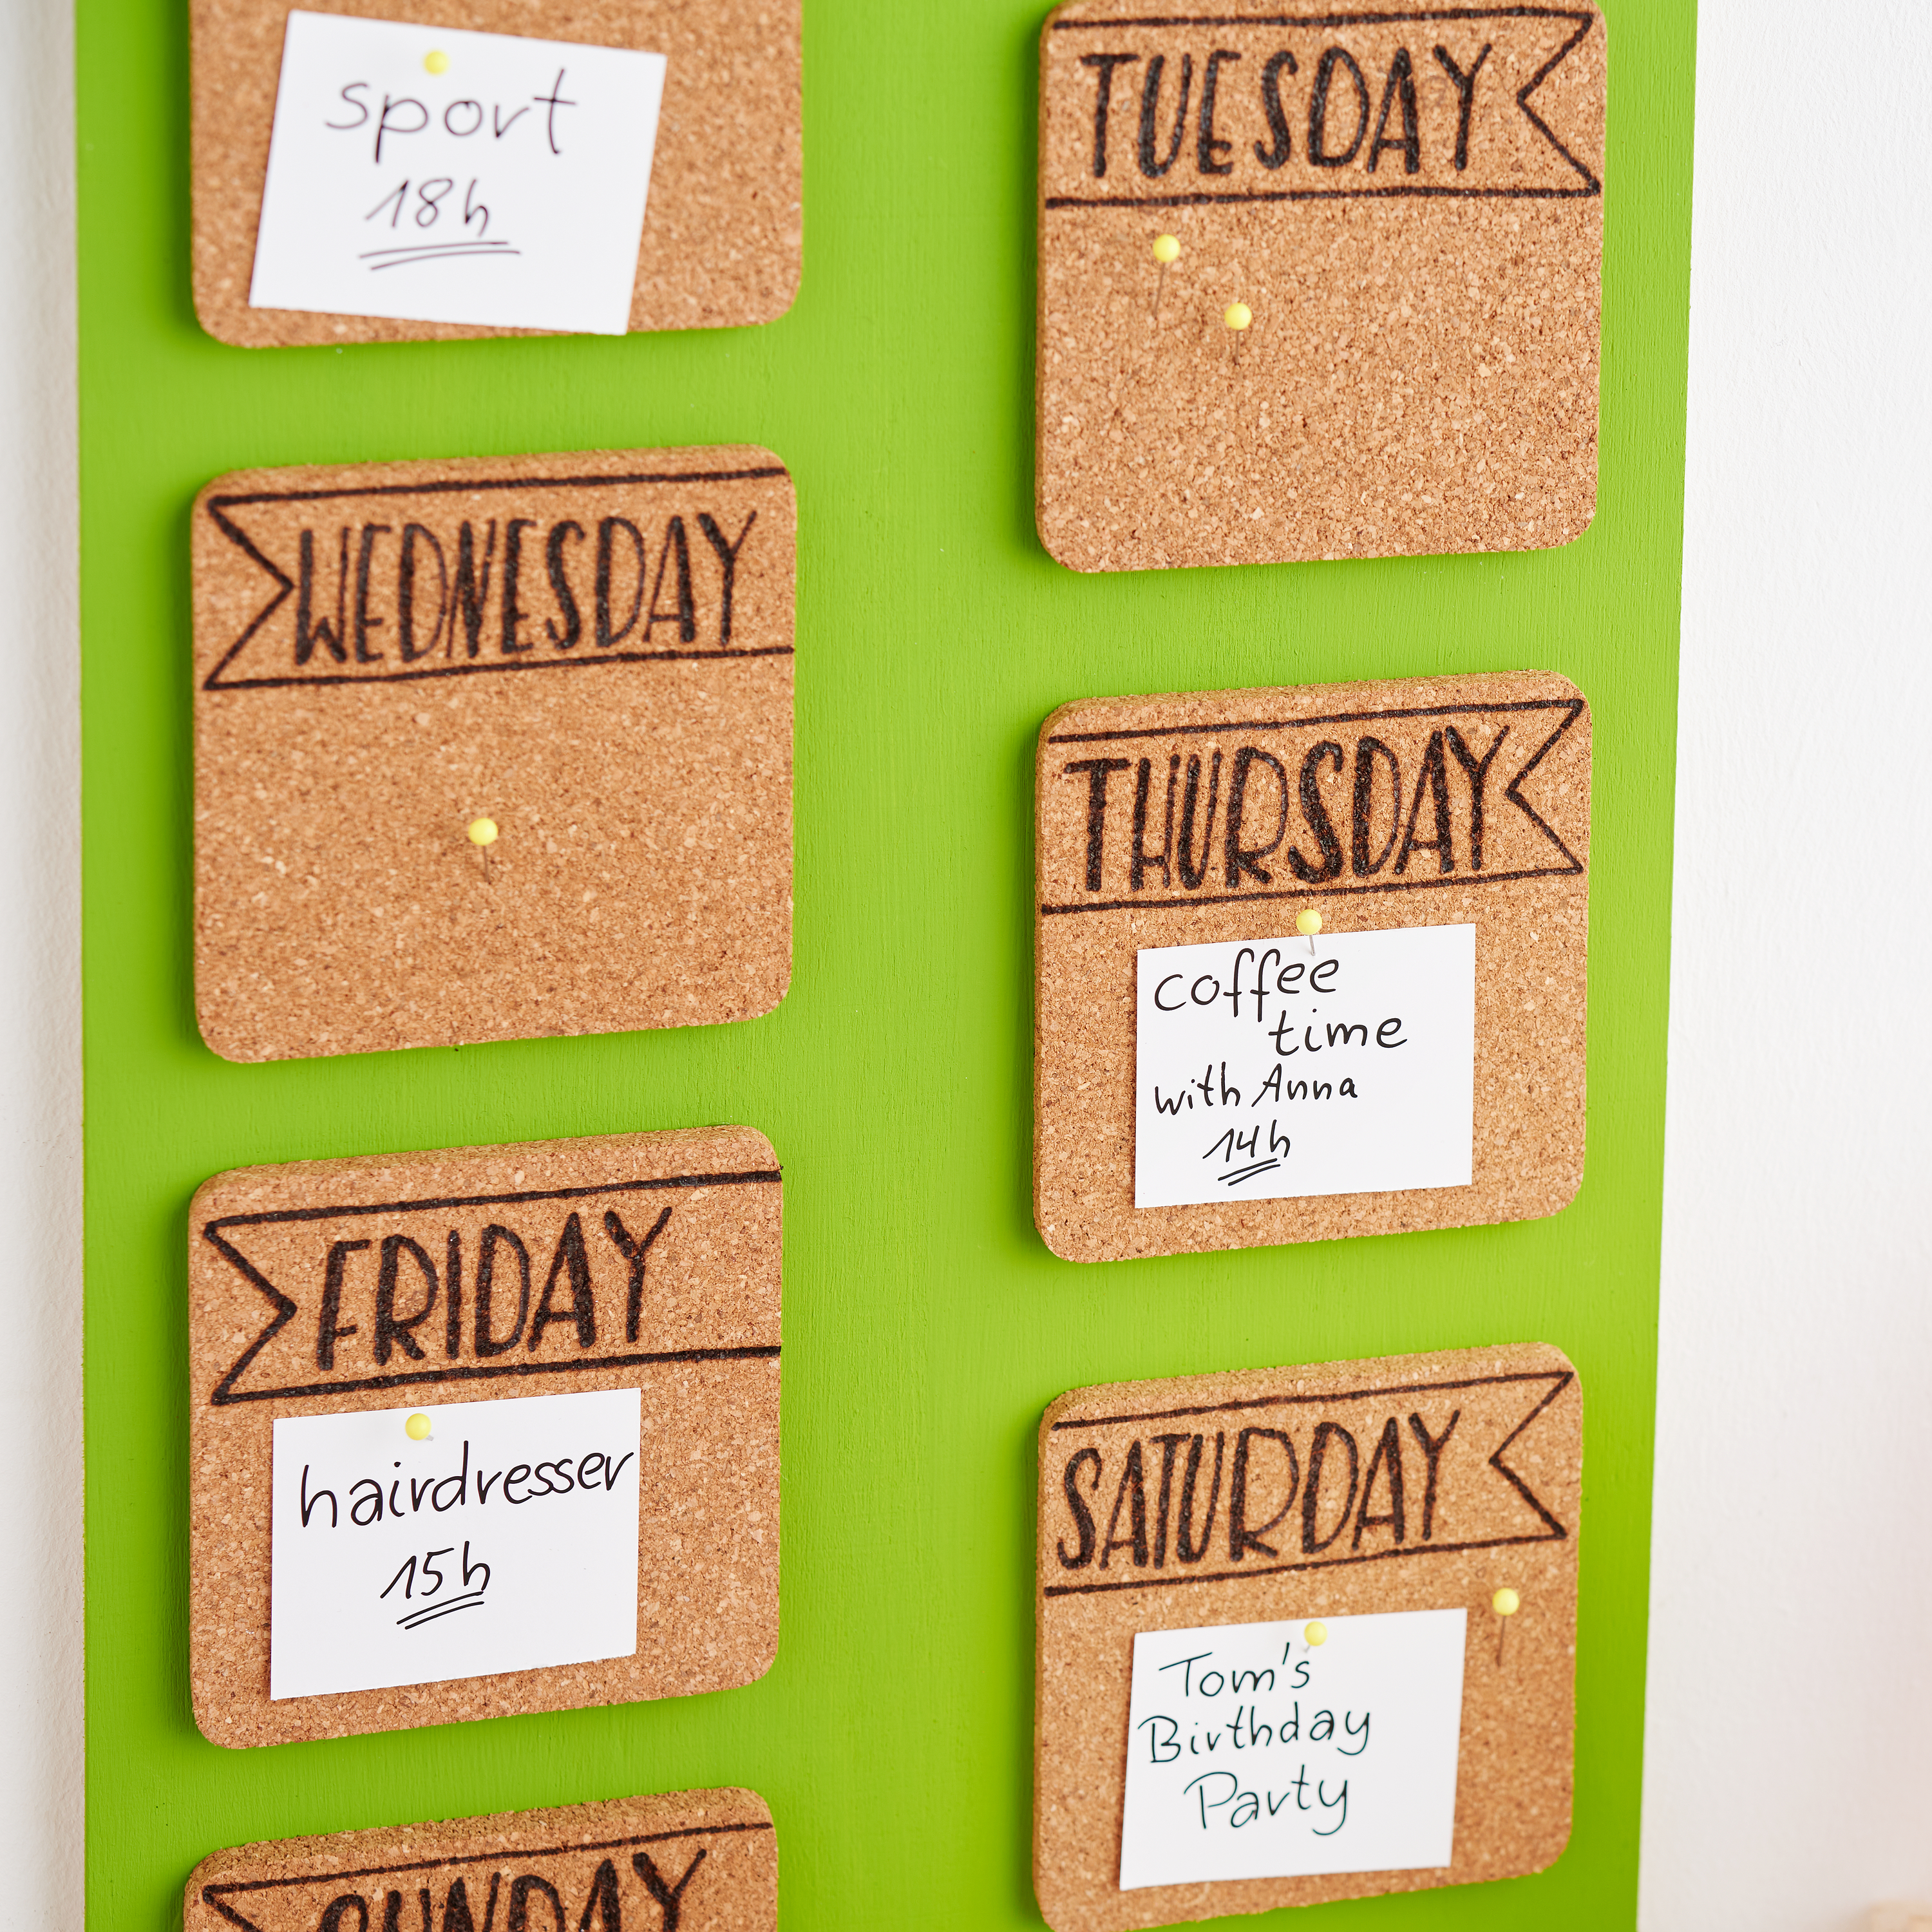 sport
18h
TUESDAY
WEDNESDAY
THURSDAY
coffee
time
with Anna
14h
FRIDAY
hairdresser
15h
SATURDAY
Tom's
Birthday
Party
SUNDAY